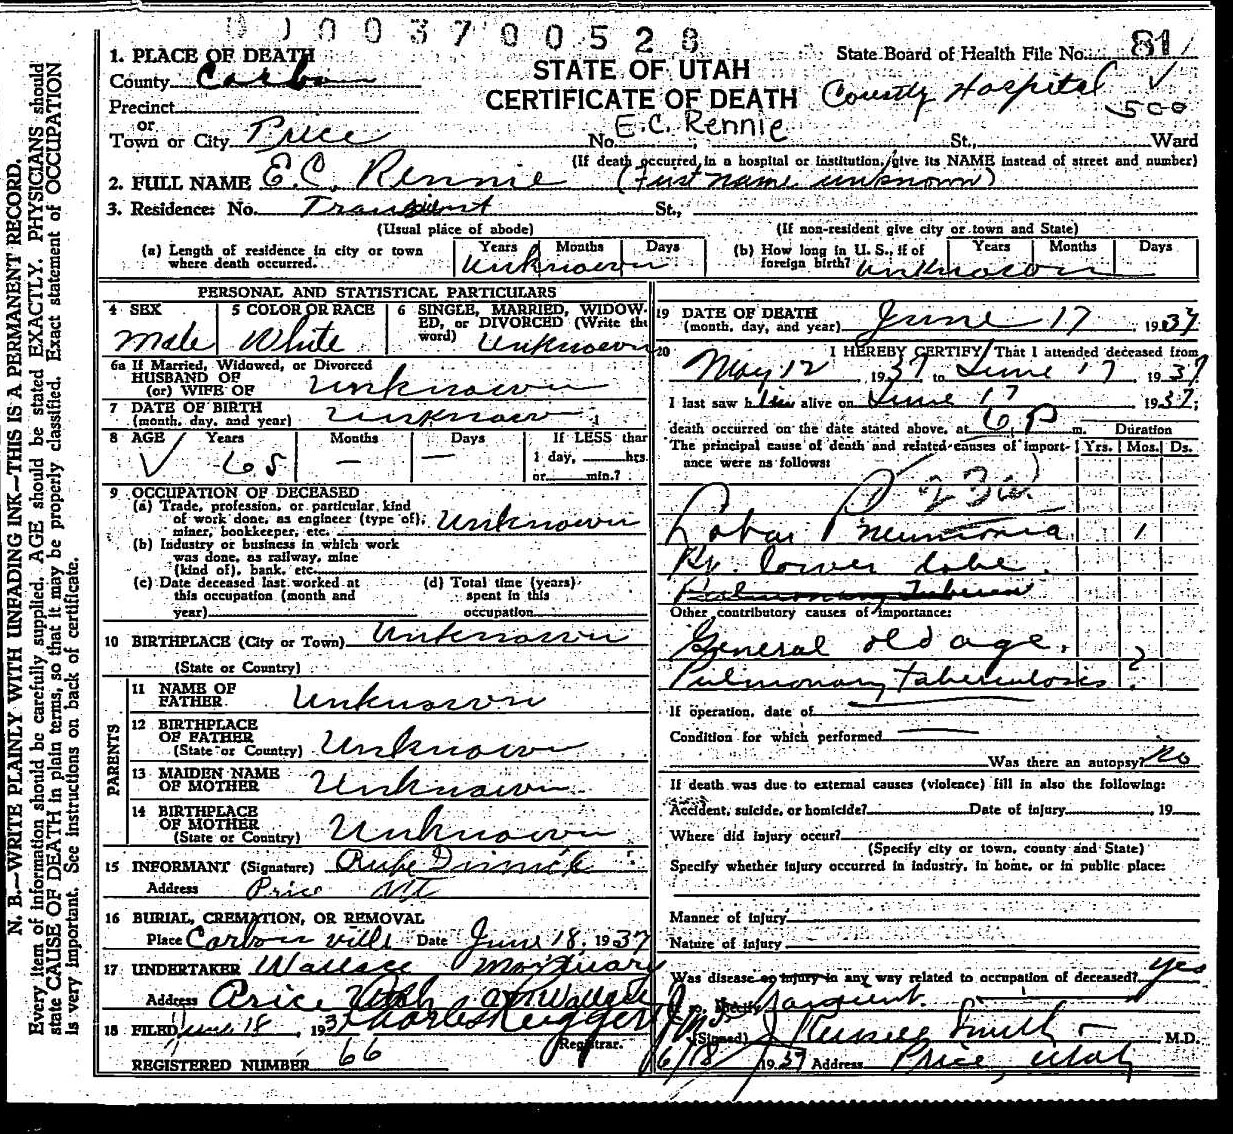 0 0 0 3 7 0 0 5 2 8
1. PLACE OF DEATH
State Board of Health File No. 81
County Carbon
STATE OF UTAH
Precinct
CERTIFICATE OF DEATH County Hospital
500
or
E.C. Rennie
Town or City Price No. St., Ward
(If death occurred in a hospital or institution, give its NAME instead of street and number)
2. FULL NAME E.C. Rennie (First name unknown)
3. Residence: No. Transient St.,
(Usual place of abode) (If non-resident give city or town and State)
(a) Length of residence in city or town where death occurred. Years Months Days
Unknown
(b) How long in U. S., if of foreign birth? Years Months Days
unknown
PERSONAL AND STATISTICAL PARTICULARS
4 SEX 5 COLOR OR RACE 6 SINGLE, MARRIED, WIDOW-
ED, or DIVORCED (Write the
word)
Male White Unknown
6a If Married, Widowed, or Divorced
HUSBAND OF
(or) WIFE OF Unknown
7 DATE OF BIRTH
(month, day, and year) Unknown
8 AGE Years Months Days If LESS than
65 — — 1 day, hrs.
or min.?
9 OCCUPATION OF DECEASED
(a) Trade, profession, or particular kind
of work done, as engineer (type of),
miner, bookkeeper, etc. Unknown
(b) Industry or business in which work
was done, as railway, mine
(kind of), bank, etc.
(c) Date deceased last worked at
this occupation (month and
year)
(d) Total time (years)
spent in this
occupation
10 BIRTHPLACE (City or Town) Unknown
(State or Country)
PARENTS
11 NAME OF
FATHER Unknown
12 BIRTHPLACE
OF FATHER
(State or Country) Unknown
13 MAIDEN NAME
OF MOTHER Unknown
14 BIRTHPLACE
OF MOTHER
(State or Country) Unknown
15 INFORMANT (Signature) Rube
Address Price Ut
16 BURIAL, CREMATION, OR REMOVAL
Place Carbonville Date June 18, 1937
17 UNDERTAKER Wallace Mortuary
Address Price Utah
18 FILED June 18, 1937
Registrar.
REGISTERED NUMBER 66
19 DATE OF DEATH
(month, day, and year) June 17, 1937
20 I HEREBY CERTIFY, That I attended deceased from
May 12 1937 to June 17, 1937
I last saw him alive on June 17 1937;
death occurred on the date stated above, at 6 P m. Duration
The principal cause of death and related causes of import-
ance were as follows: Yrs. Mos. Ds.
Lobar Pneumonia 1
Rt. lower lobe.
Other contributory causes of importance:
General old age.
Pulmonary tuberculosis ?
If operation, date of
Condition for which performed
Was there an autopsy? No
If death was due to external causes (violence) fill in also the following:
Accident, suicide, or homicide? Date of injury 19
Where did injury occur?
(Specify city or town, county and State)
Specify whether injury occurred in industry, in home, or in public place:
Manner of injury
Nature of injury
Was disease or injury in any way related to occupation of deceased? yes
(Signed) J Russell Smith M.D.
6/18 1937 Address Price, Utah
N. B.—WRITE PLAINLY WITH UNFADING INK—THIS IS A PERMANENT RECORD.
Every item of information should be carefully supplied. AGE should be stated EXACTLY. PHYSICIANS should
state CAUSE OF DEATH in plain terms, so that it may be properly classified. Exact statement of OCCUPATION
is very important. See instructions on back of certificate.